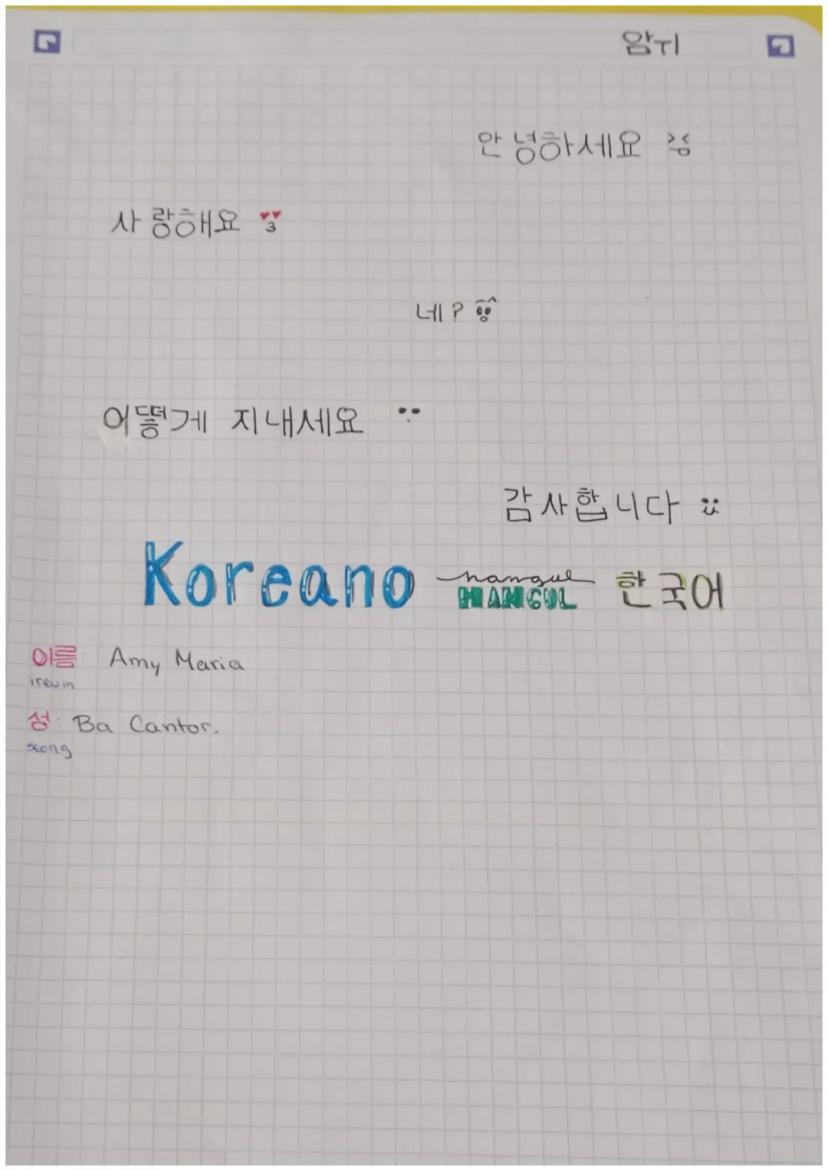 안녕하세요
사랑해요
네?
어떻게 지내세요
감사합니다
Koreano hangul HANGUL 한국어
이름 Amy Maria
ireum
성: Ba Cantor.
seong